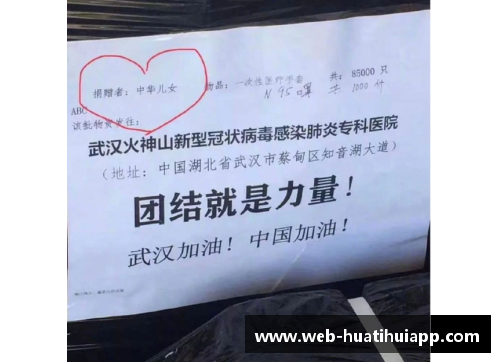 捐赠者：中华儿女 物品：一次性医疗手套 共：85000 只
N95口罩 共 1000个
ABC
该批物资发往：
武汉火神山新型冠状病毒感染肺炎专科医院
（地址：中国湖北省武汉市蔡甸区知音湖大道）
团结就是力量！
武汉加油！中国加油！
www.web-huatihuiapp.com